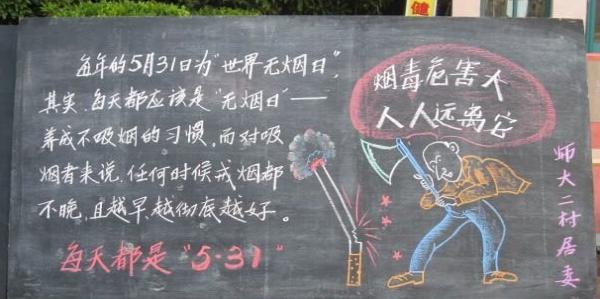 健
每年的5月31日为"世界无烟日",
其实,每天都应该是"无烟日"——
养成不吸烟的习惯,而对吸
烟者来说,任何时候戒烟都
不晚,且越早越彻底越好。
每天都是"5·31"
烟毒危害大
人人远离安
师大二村居委